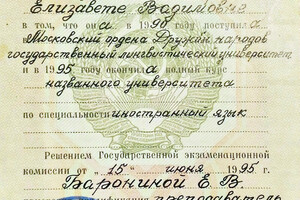 Елизавете Вадимовне
в том, что она в 1998 году поступила
Московский ордена Дружбы народов
государственный лингвистический университет
и в 1995 году окончила полный курс
названного университета
по специальности иностранный язык
Решением Государственной экзаменационной
комиссии от "15" июня 1995 г.
Барониной Е. В.
преподаватель